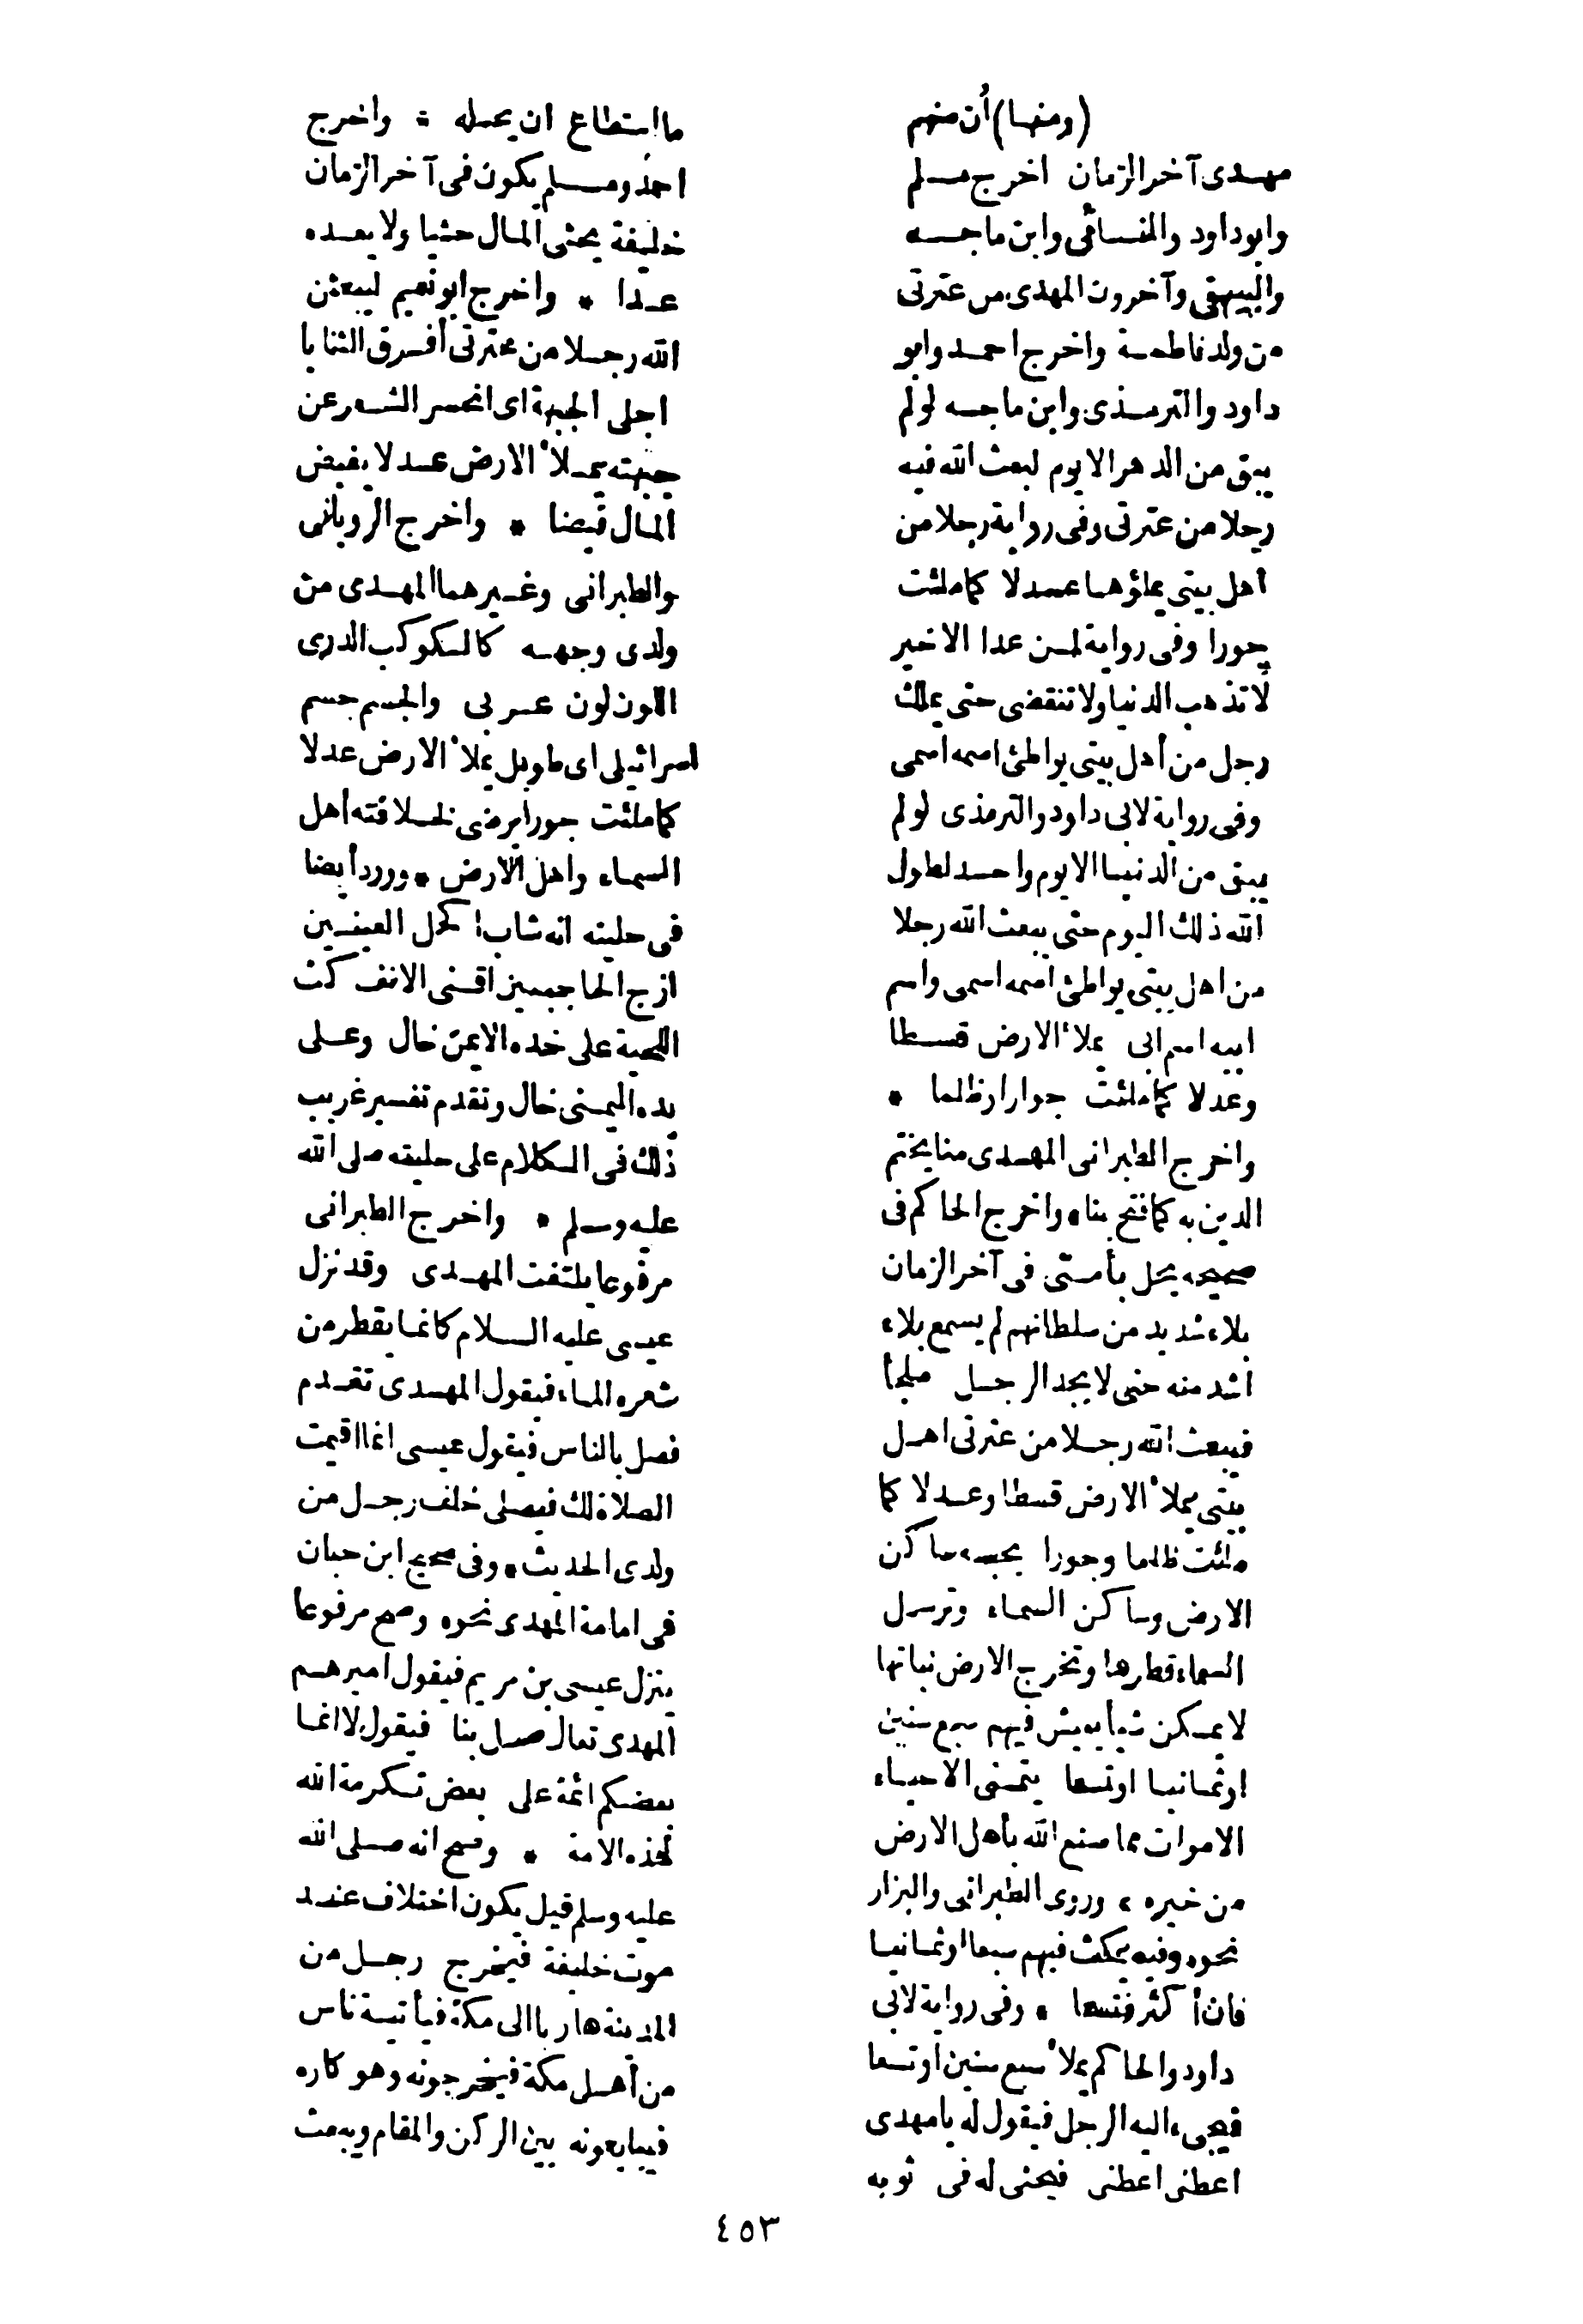 (ومنها) أن منهم
مهدى آخر الزمان اخرج مسلم
وابو داود والنسائى وابن ماجه
والبيهقى وآخرون المهدى من عترتى
من ولد فاطمة واخرج احمد وابو
داود والترمذى وابن ماجه لو لم
يبق من الدهر الا يوم لبعث الله فيه
رجلا من عترتى وفى رواية رجلا من
أهل بيتى يملؤها عدلا كما ملئت
جورا وفى رواية لمن عدا الاخير
لا تذهب الدنيا ولا تنقضى حتى يملك
رجل من أهل بيتى يواطئ اسمه اسمى
وفى رواية لابى داود والترمذى لو لم
يبق من الدنيا الا يوم واحد لطول
الله ذلك اليوم حتى يبعث الله رجلا
من اهل بيتى يواطئ اسمه اسمى واسم
ابيه اسم ابى يملأ الارض قسطا
وعدلا كما ملئت جورا وظلما *
واخرج الطبرانى المهدى منا يختم
الدين به كما فتح بنا * واخرج الحاكم فى
صحيحه يحل بأمتى فى آخر الزمان
بلاء شديد من سلطانهم لم يسمع بلاء
أشد منه حتى لا يجد الرجل ملجأ
فيبعث الله رجلا من عترتى اهل
بيتى يملأ الارض قسطا وعدلا كما
ملئت ظلما وجورا يحبه ساكن
الارض وساكن السماء وترسل
السماء قطرها وتخرج الارض نباتها
لا تمسكن شيأ يعيش فيهم سبع سنين
او ثمانيا او تسعا يتمنى الاحياء
الاموات مما صنع الله بأهل الارض
من خيره * وروى الطبرانى والبزار
نحوه وفيه يمكث فيهم سبعا او ثمانيا
فان أكثر فتسعا * وفى رواية لابى
داود والحاكم يملأ سبع سنين أو تسعا
فيجىء اليه الرجل فيقول له يا مهدى
اعطنى اعطنى فيحثى له فى ثوبه
ما استطاع ان يحمله * واخرج
احمد ومسلم يكون فى آخر الزمان
خليفة يحثى المال حثيا ولا يعده
عدا * واخرج ابو نعيم ليبعثن
الله رجلا من عترتى أفرق الثنايا
اجلى الجبهة اى انحسر الشعر عن
جبهته يملأ الارض عدلا يفيض
المال فيضا * واخرج الرويانى
والطبرانى وغيرهما المهدى من
ولدى وجهه كالكوكب الدرى
اللون لون عربى والجسم جسم
اسرائيلى اى طويل يملأ الارض عدلا
كما ملئت جورا يرضى لخلافته أهل
السماء واهل الارض * وورد أيضا
فى حليته انه شاب اكحل العينين
ازج الحاجبين اقنى الانف كث
اللحية على خده الايمن خال وعلى
يده اليمنى خال وتقدم تفسير غريب
ذلك فى الكلام على حليته صلى الله
عليه وسلم * واخرج الطبرانى
مرفوعا يلتفت المهدى وقد نزل
عيسى عليه السلام كانما يقطر من
شعره الماء فيقول المهدى تقدم
فصل بالناس فيقول عيسى انما اقيمت
الصلاة لك فيصلى خلف رجل من
ولدى الحديث * وفى صحيح ابن حبان
فى امامة المهدى نحوه وصح مرفوعا
ينزل عيسى بن مريم فيقول اميرهم
المهدى تعال صل بنا فيقول لا انما
بعضكم ائمة على بعض تكرمة الله
لهذه الامة * وصح انه صلى الله
عليه وسلم قيل يكون اختلاف عند
موت خليفة فيخرج رجل من
المدينة هاربا الى مكة فيأتيه ناس
من أهل مكة فيخرجونه وهو كاره
فيبايعونه بين الركن والمقام ويبعث
٤٥٣